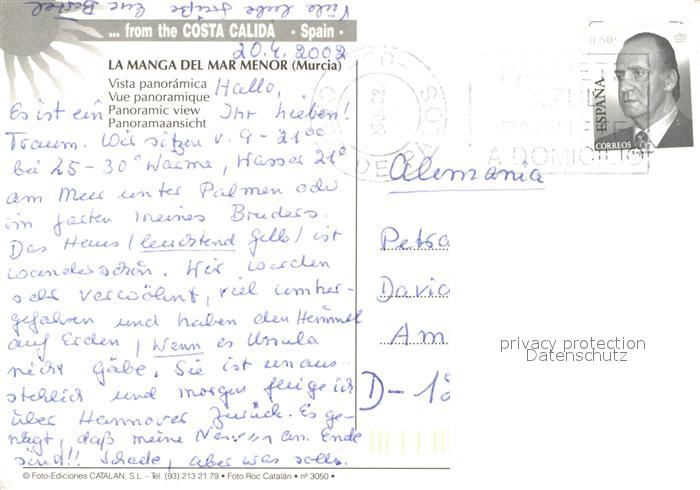 Viele liebe Grüße Eure Bärbel
... from the COSTA CALIDA · Spain ·
20.4.2002
LA MANGA DEL MAR MENOR (Murcia)
Vista panorámica
Vue panoramique
Panoramic view
Panoramaansicht
Hallo,
Ihr Lieben!
Es ist ein
Traum. Wir sitzen v. 9 - 21⁰⁰
bei 25 - 30° Wärme, Wasser 21°
am Meer unter Palmen oder
im Garten meines Bruders.
Das Haus (leuchtend gelb) ist
wunderschön. Wir werden
sehr verwöhnt, viel umher-
gefahren und haben den Himmel
auf Erden, Wenn es Ursula
nicht gäbe. Sie ist unaus-
stehlich und morgen fliege ich
über Hannover zurück. Es ge-
nügt, daß meine Nerven am Ende
sind!! Schade, aber was solls.
© Foto-Ediciones CATALAN, S.L. - Tel. (93) 213 21 79 • Foto Roc Catalán • nº 3050 •
0,50€
ESPAÑA
CORREOS
A DOMICILIO
Alemania
Petra
David
Am
D - 18
privacy protection
Datenschutz